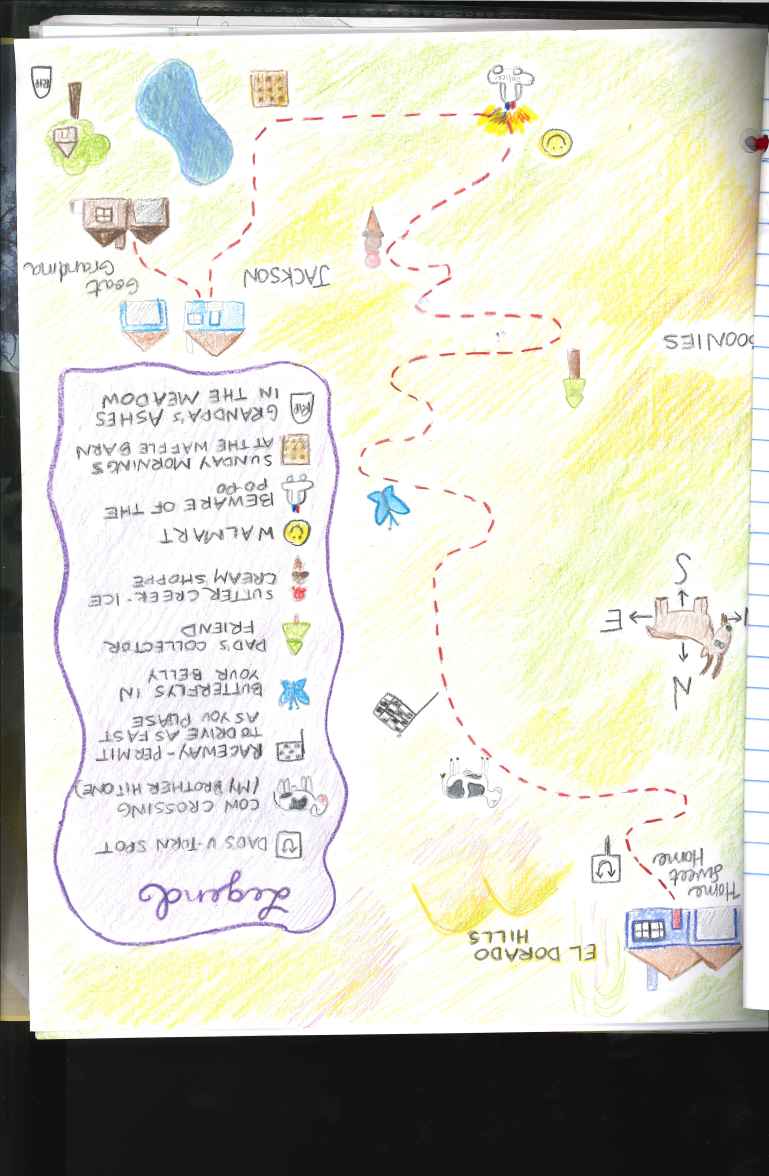 EL DORADO
HILLS
Home
Sweet
Home
Legend
DADS U-TURN SPOT
COW CROSSING
(MY BROTHER HIT ONE)
RACEWAY-PERMIT
TO DRIVE AS FAST
AS YOU PLEASE
BUTTERFLYS IN
YOUR BELLY
DAD'S COLLECTOR
FRIEND
SUTTER CREEK-ICE
CREAM SHOPPE
WALMART
BEWARE OF THE
PO-PO
SUNDAY MORNINGS
AT THE WAFFLE BARN
RIP
GRANDPA'S ASHES
IN THE MEADOW
N
E
S
OONIES
JACKSON
Goat
Grandma
RIP